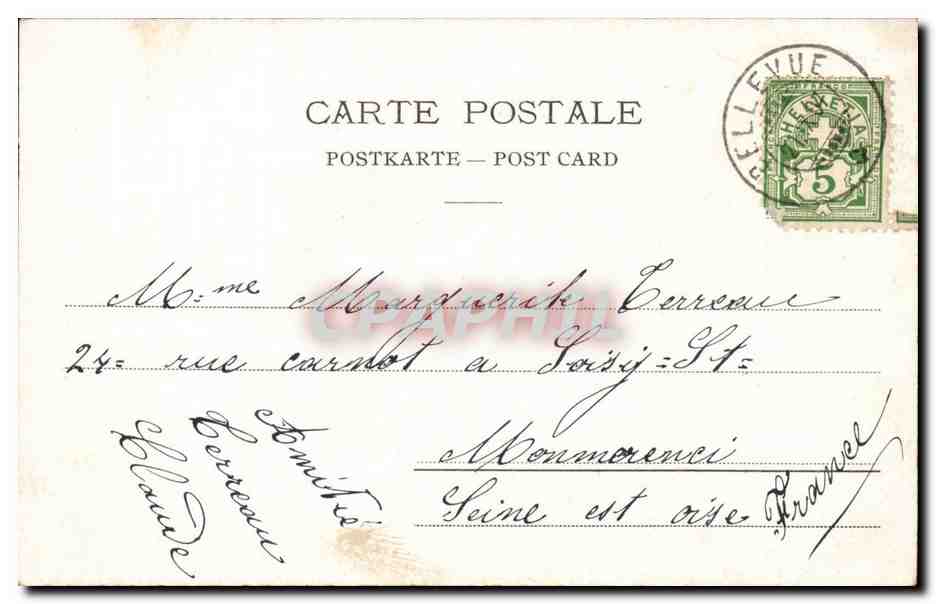 CARTE POSTALE
POSTKARTE — POST CARD
BELLEVUE
HELVETIA
5
M.me Marguerite Terreau
24= rue carnot a Soisy=St=
Monmorenci
Seine est oise
France
Amitié
Terreau
Claude
CPAPHIL